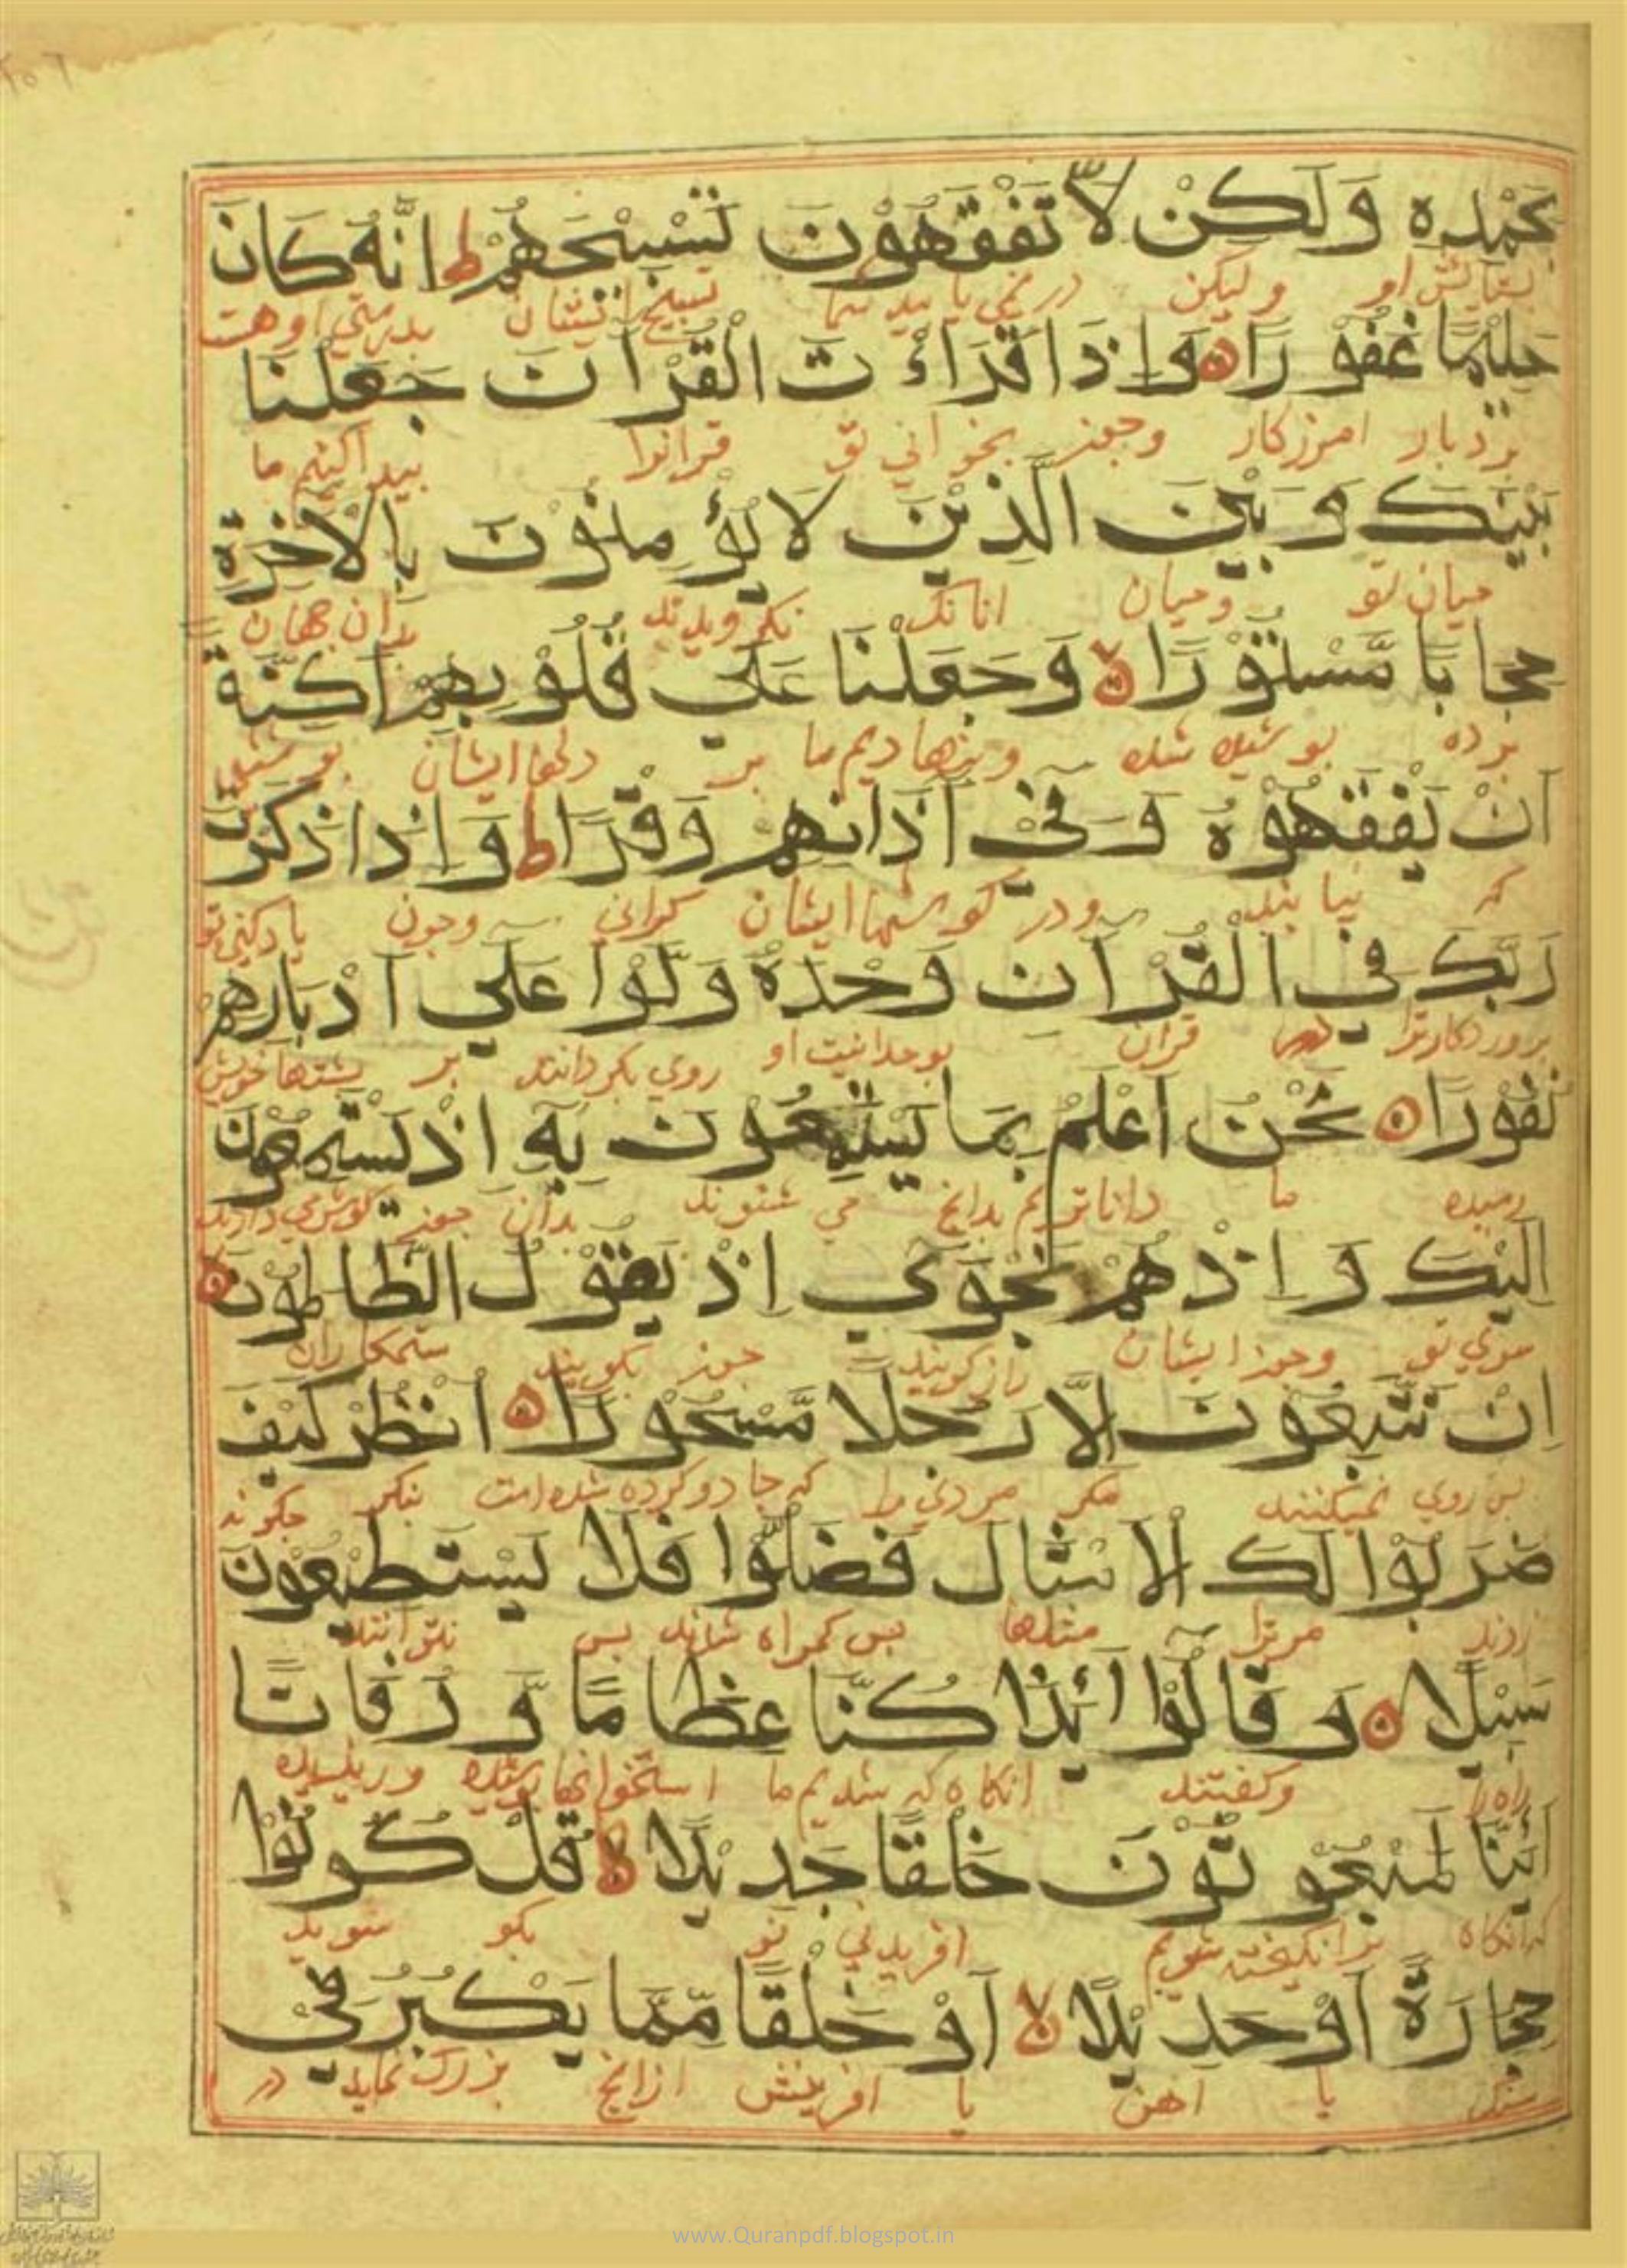 بِحَمْدِهٖ وَلٰكِنْ لَّا تَفْقَهُوْنَ تَسْبِيْحَهُمْ ط اِنَّهٗ كَانَ
بستايش او وليكن در نمي يابيد شما تسبيح ايشان بدرستي او هست
حَلِيْمًا غَفُوْرًا ه وَاِذَا قَرَاْتَ الْقُرْاٰنَ جَعَلْنَا
بردبار امرزكار وجون بخواني تو قرانرا بيدا كنيم ما
بَيْنَكَ وَبَيْنَ الَّذِيْنَ لَا يُؤْمِنُوْنَ بِالْاٰخِرَةِ
ميان تو وميان انانكه نكرويدند بدان جهان
حِجَابًا مَّسْتُوْرًا لا وَجَعَلْنَا عَلٰى قُلُوْبِهِمْ اَكِنَّةً
برده بوشيده شده وبنهاديم ما بر دلها ايشان
اَنْ يَّفْقَهُوْهُ وَفِيْ اٰذَانِهِمْ وَقْرًا ط وَاِذَا ذَكَرْتَ
كه نيابند ودر كوشها ايشان كراني وجون ياد كني تو
رَبَّكَ فِي الْقُرْاٰنِ وَحْدَهٗ وَلَّوْا عَلٰى اَدْبَارِهِمْ
بروردكار ترا در قران بوحدانيت او روي بكردانند بر بشتها خويش
نُفُوْرًا ه نَحْنُ اَعْلَمُ بِمَا يَسْتَمِعُوْنَ بِهٖ اِذْ يَسْتَمِعُوْنَ
رميده ما داناتريم بدانج مي شنوند بدان جون كوش مي دارند
اِلَيْكَ وَاِذْ هُمْ نَجْوٰى اِذْ يَقُوْلُ الظَّالِمُوْنَ ه
سوي تو وجون ايشان راز كويند جون بكويند ستمكاران
اِنْ تَتَّبِعُوْنَ اِلَّا رَجُلًا مَّسْحُوْرًا ه اُنْظُرْ كَيْفَ
بس روي نميكنند مكر مردي را كه جادو كرده شده است بنكر جكونه
ضَرَبُوْا لَكَ الْاَمْثَالَ فَضَلُّوْا فَلَا يَسْتَطِيْعُوْنَ
زدند مر ترا مثلها بس كمراه شدند بس نتوانند
سَبِيْلًا ه وَقَالُوْا اَئِذَا كُنَّا عِظَامًا وَّرُفَاتًا
راه را وكفتند انكاه كه شديم ما استخوانها بوسيده وريسيده
اَئِنَّا لَمَبْعُوْثُوْنَ خَلْقًا جَدِيْدًا لا قُلْ كُوْنُوْا
كه انكاه برانكيخته شويم افريدني نو بكو شويد
حِجَارَةً اَوْ حَدِيْدًا لا اَوْ خَلْقًا مِّمَّا يَكْبُرُ فِيْ
سنك يا اهن يا افرينش ازانج بزرك نمايد در
www.Quranpdf.blogspot.in